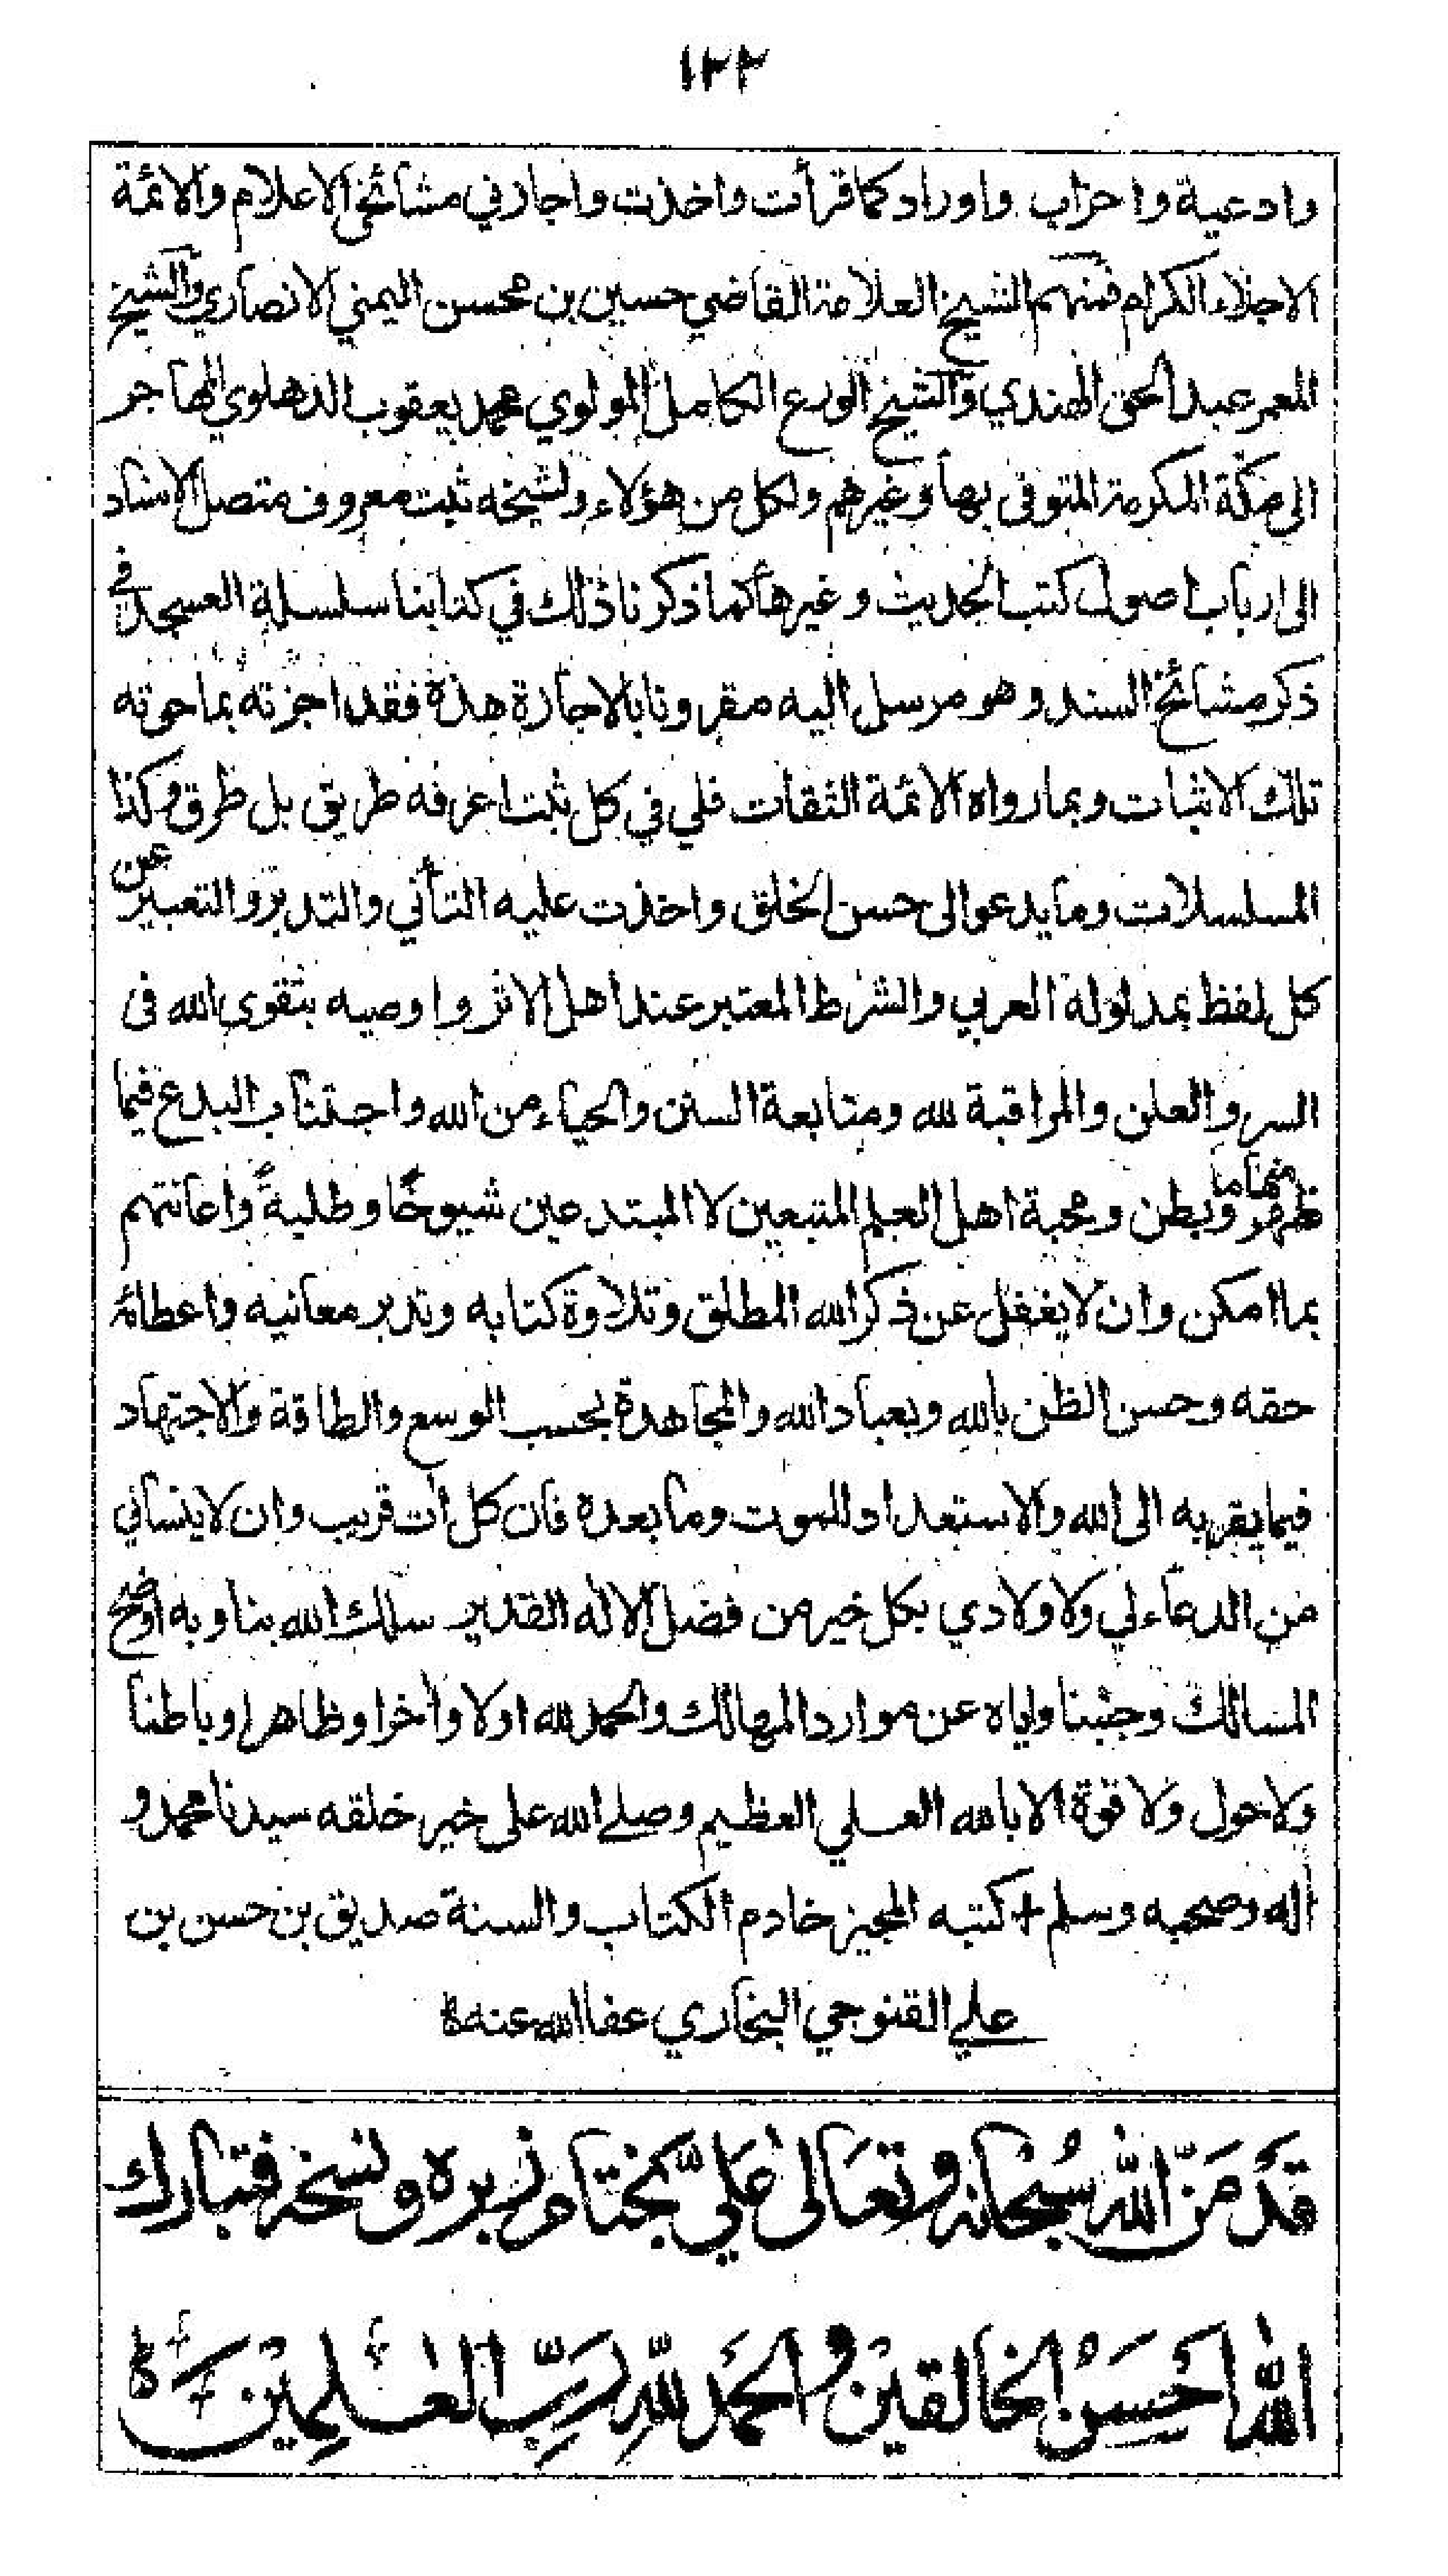 ١٢٢
وادعية واحزاب واوراد كما قرأت واخذت واجازني مشائخي الاعلام والائمة
الاجلاء الكرام فمنهم الشيخ العلامة القاضي حسين بن محسن اليمني الانصاري والشيخ
المعمر عبد الحق الهندي والشيخ الورع الكامل المولوي محمد يعقوب الدهلوي المهاجر
الى مكة المكرمة المتوفى بها وغيرهم ولكل من هؤلاء ولشيخه ثبت معروف متصل الاسناد
الى ارباب اصول كتب الحديث وغيرها كما ذكرنا ذلك في كتابنا سلسلة العسجد في
ذكر مشائخ السند وهو مرسل اليه مقرونا بالاجازة هذه فقد اجزته بما حوته
تلك الاثبات وبما رواه الائمة الثقات فلي في كل ثبت اعرفه طريق بل طرق وكذا
المسلسلات وما يدعو الى حسن الخلق واخذت عليه التأني والتدبر والتعبير عن
كل لفظ بمدلوله العربي والشرط المعتبر عند اهل الاثر واوصيه بتقوى الله فى
السر والعلن والمراقبة لله ومتابعة السنن والحياء من الله واجتناب البدع فيما
ظهر منها وما بطن ومحبة اهل العلم المتبعين لا المبتدعين شيوخًا وطلبةً واعانتهم
بما امكن وان لا يغفل عن ذكر الله المطلق وتلاوة كتابه وتدبر معانيه واعطائه
حقه وحسن الظن بالله وبعباد الله والمجاهدة بحسب الوسع والطاقة والاجتهاد
فيما يقربه الى الله والاستعداد للموت وما بعده فان كل اٰت قريب وان لا ينساني
من الدعاء لي ولاولادي بكل خير من فضل الاله القدير سلك الله بنا وبه اوضح
المسالك وجنبنا واياه عن موارد المهالك والحمد لله اولا واٰخرا وظاهرا وباطنا
ولا حول ولا قوة الا بالله العلي العظيم وصلے الله على خير خلقه سيدنا محمد و
اٰله وصحبه وسلم + كتبه المجيز خادم الكتاب والسنة صديق بن حسن بن
علے القنوجي البخاري عفا الله عنه
قَدْ مَنّ اللّٰه سُبْحَانَه وتعَالىٰ عَليَّ بختام زبره ونسخه فتبارك
اللّٰه اَحْسَنُ الخالقينْ والحَمْد للّٰهِ رَبِّ العٰلمِيْن